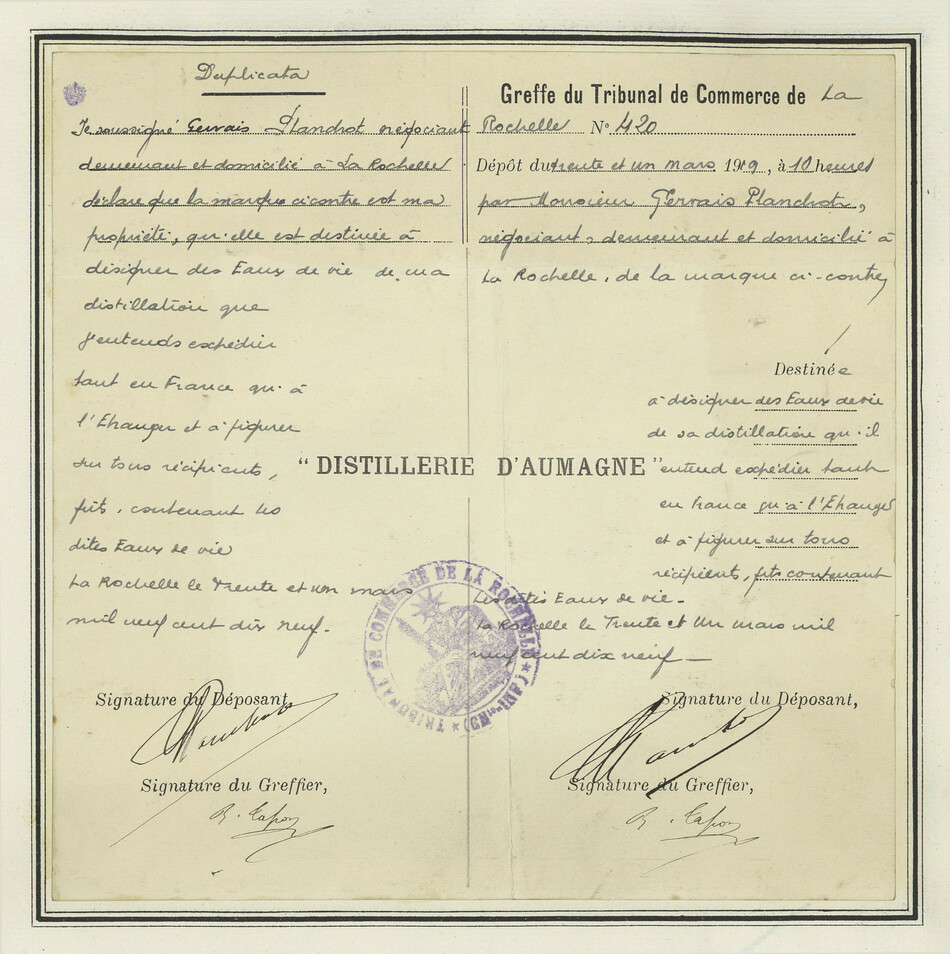 Duplicata
Je soussigné Gervais Planchot négociant
demeurant et domicilié à La Rochelle
déclare que la marque ci contre est ma
propriété, qu'elle est destinée à
désigner des Eaux de vie de ma
distillation que
j'entends expédier
tant en France qu'à
l'Etranger et à figurer
sur tous récipients,
fûts, contenant les
dites Eaux de vie
La Rochelle le Trente et un mars
mil neuf cent dix neuf.
Signature du Déposant,
Signature du Greffier,
"DISTILLERIE D'AUMAGNE"
TRIBUNAL DE COMMERCE DE LA ROCHELLE
Greffe du Tribunal de Commerce de La
Rochelle N° 420
Dépôt du trente et un mars 1919, à 10 heures
par Monsieur Gervais Planchot,
négociant, demeurant et domicilié à
La Rochelle, de la marque ci-contre,
Destinée
à désigner des Eaux de vie
de sa distillation qu'il
entend expédier tant
en France qu'à l'Etranger
et à figurer sur tous
récipients, fûts contenant
Les dites Eaux de vie.
La Rochelle le Trente et Un mars mil
neuf cent dix neuf
Signature du Déposant,
Signature du Greffier,